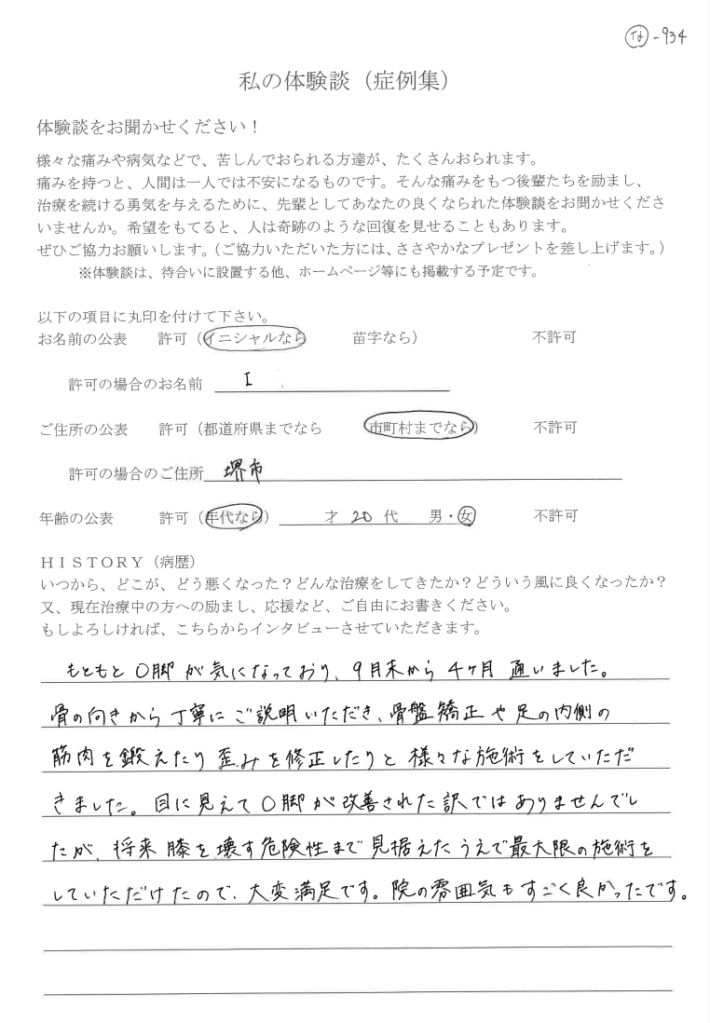 な-934
私の体験談（症例集）
体験談をお聞かせください！
様々な痛みや病気などで、苦しんでおられる方達が、たくさんおられます。
痛みを持つと、人間は一人では不安になるものです。そんな痛みをもつ後輩たちを励まし、
治療を続ける勇気を与えるために、先輩としてあなたの良くなられた体験談をお聞かせくださ
いませんか。希望をもてると、人は奇跡のような回復を見せることもあります。
ぜひご協力お願いします。（ご協力いただいた方には、ささやかなプレゼントを差し上げます。）
※体験談は、待合いに設置する他、ホームページ等にも掲載する予定です。
以下の項目に丸印を付けて下さい。
お名前の公表 許可（イニシャルなら 苗字なら） 不許可
許可の場合のお名前 I
ご住所の公表 許可（都道府県までなら 市町村までなら） 不許可
許可の場合のご住所 堺市
年齢の公表 許可（年代なら） 才 20 代 男・女 不許可
ＨＩＳＴＯＲＹ（病歴）
いつから、どこが、どう悪くなった？どんな治療をしてきたか？どういう風に良くなったか？
又、現在治療中の方への励まし、応援など、ご自由にお書きください。
もしよろしければ、こちらからインタビューさせていただきます。
もともと O脚 が 気になっており、9月末から 4ヶ月 通いました。
骨の向きから 丁寧に ご説明いただき、骨盤矯正 や 足の内側の
筋肉を鍛えたり 歪みを修正したりと 様々な施術をしていただ
きました。目に見えて O脚が改善された訳ではありませんでし
たが、将来 膝を壊す危険性まで 見据えたうえで最大限の施術を
していただけたので、大変満足です。院の雰囲気もすごく良かったです。